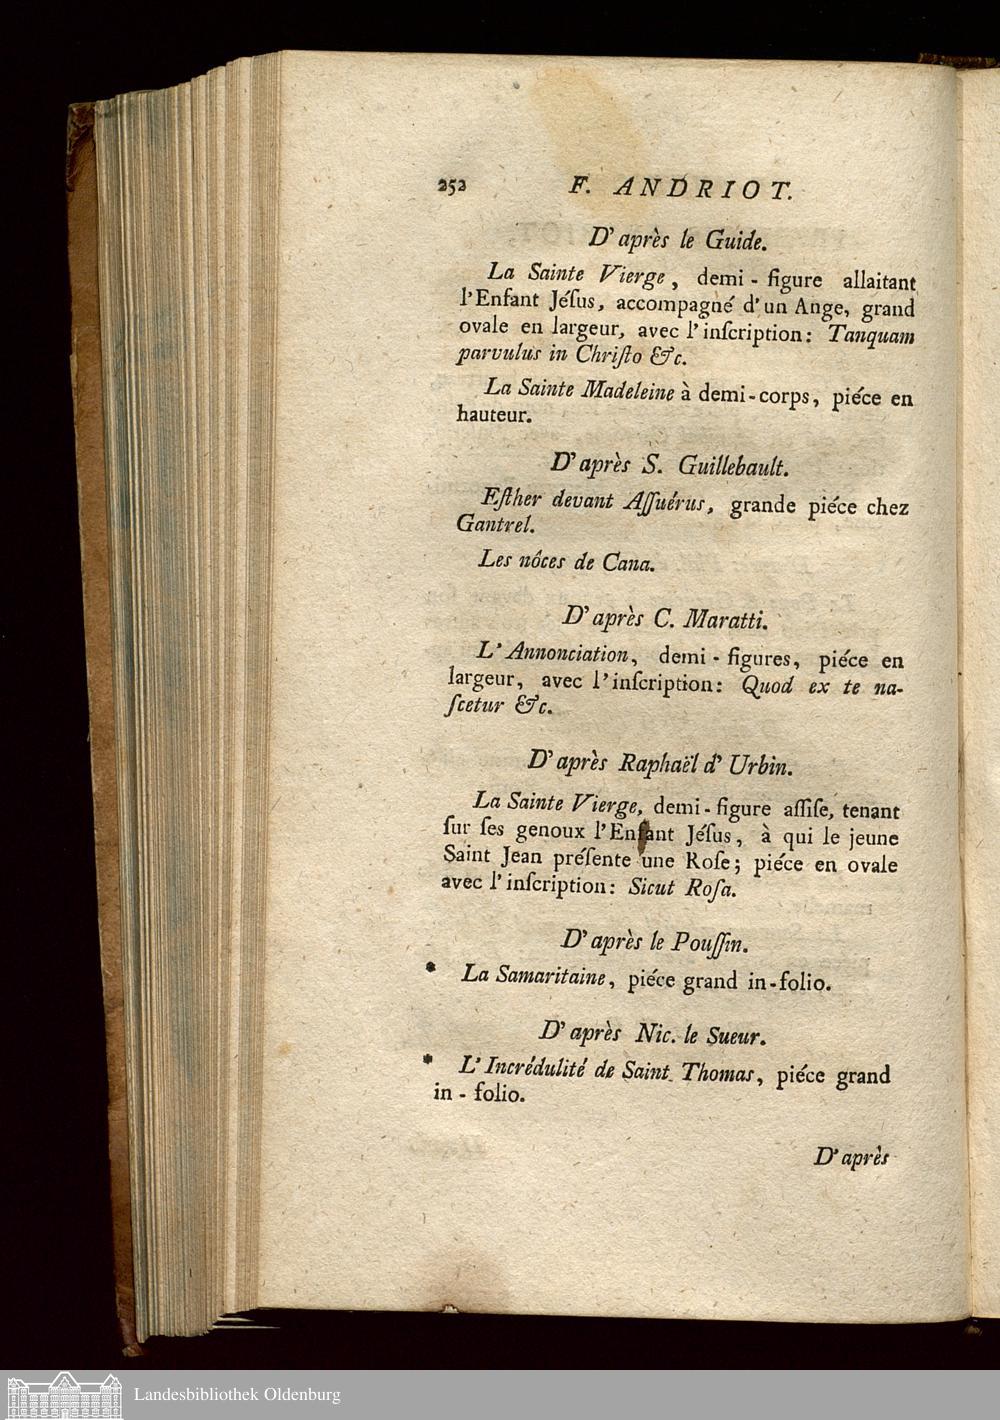 252 F. ANDRIOT.
D'après le Guide.
La Sainte Vierge, demi-figure allaitant
l'Enfant Jéſus, accompagné d'un Ange, grand
ovale en largeur, avec l'inſcription: Tanquam
parvulus in Chriſto &c.
La Sainte Madeleine à demi-corps, piéce en
hauteur.
D'après S. Guillebault.
Eſther devant Aſſuérus, grande piéce chez
Gantrel.
Les nôces de Cana.
D'après C. Maratti.
L'Annonciation, demi-figures, piéce en
largeur, avec l'inſcription: Quod ex te na-
ſcetur &c.
D'après Raphaël d'Urbin.
La Sainte Vierge, demi-figure aſſiſe, tenant
ſur ſes genoux l'Enfant Jéſus, à qui le jeune
Saint Jean préſente une Roſe; piéce en ovale
avec l'inſcription: Sicut Roſa.
D'après le Pouſſin.
* La Samaritaine, piéce grand in-folio.
D'après Nic. le Sueur.
* L'Incrédulité de Saint Thomas, piéce grand
in-folio.
D'après
Landesbibliothek Oldenburg